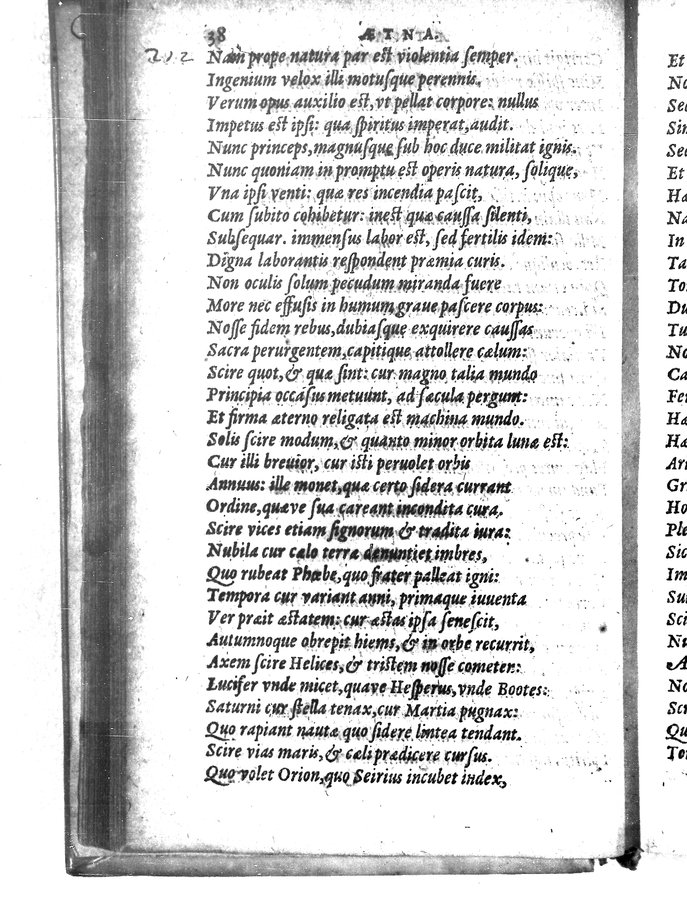 38 ÆTNA.
212 Nam prope natura par est violentia semper.
Ingenium velox illi motusque perennis.
Verum opus auxilio est, vt pellat corpore: nullus
Impetus est ipsi: qua spiritus imperat, audit.
Nunc princeps, magnusque sub hoc duce militat ignis.
Nunc quoniam in promptu est operis natura, solique,
Vna ipsi venti: quæ res incendia pascit,
Cum subito cohibetur: inest quæ caussa silenti,
Subsequar. immensus labor est, sed fertilis idem:
Digna laborantis respondent præmia curis.
Non oculis solum pecudum miranda fuere
More nec effusis in humum graue pascere corpus:
Nosse fidem rebus, dubiasque exquirere caussas
Sacra perurgentem, capitique attollere cælum:
Scire quot, & quæ sint: cur magno talia mundo
Principia occasus metuunt, ad sæcula pergunt:
Et firma æterno religata est machina mundo.
Solis scire modum, & quanto minor orbita lunæ est:
Cur illi breuior, cur isti peruolet orbis
Annuus: ille monet, quæ certo sidera currant
Ordine, quæve sua careant incondita cura.
Scire vices etiam signorum & tradita iura:
Nubila cur cælo terra denuntiet imbres,
Quo rubeat Phœbe, quo frater palleat igni:
Tempora cur variant anni, primaque iuuenta
Ver præit æstatem: cur æstas ipsa senescit,
Autumnoque obrepit hiems, & in orbe recurrit,
Axem scire Helices, & tristem nosse cometen:
Lucifer vnde micet, quave Hesperus, vnde Bootes:
Saturni cur stella tenax, cur Martia pugnax:
Quo rapiant nautæ quo sidere lintea tendant.
Scire vias maris, & cæli prædicere cursus.
Quo volet Orion, quo Seirius incubet index,
Et
No
Sed
Sin
Sed
Et
Ha
Na
In
Ta
To
Du
Tu
No
Ca
Fer
Hæ
Hæ
Arn
Gr
Ho
Ple
Sic
Im
Su
Sci
Nu
No
Scr
Qu
Tor